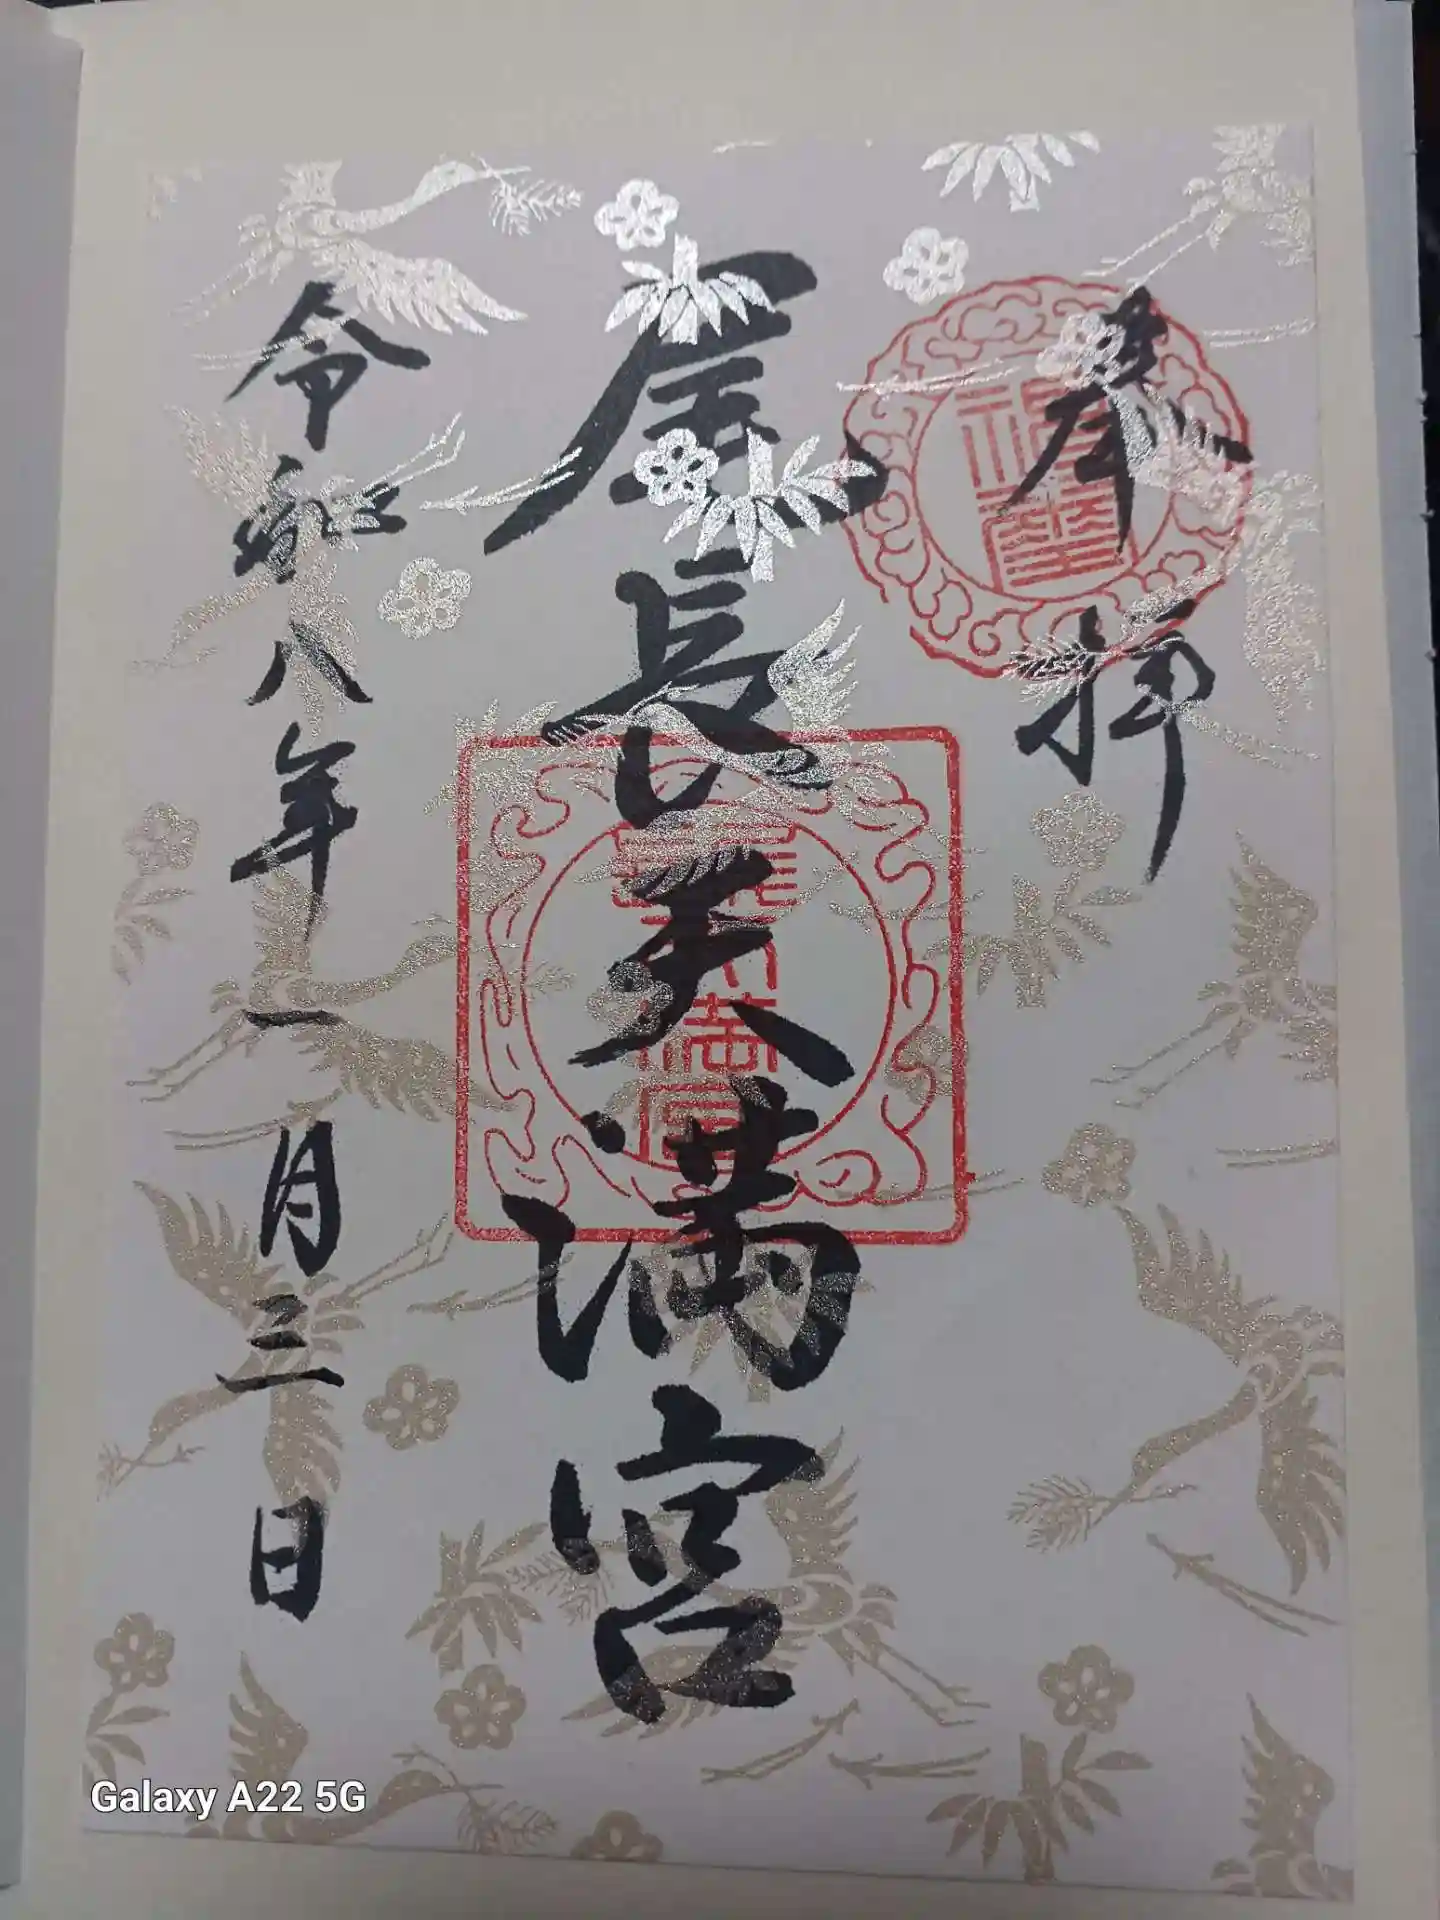 奉拝
尾長天満宮
令和八年一月三日
Galaxy A22 5G